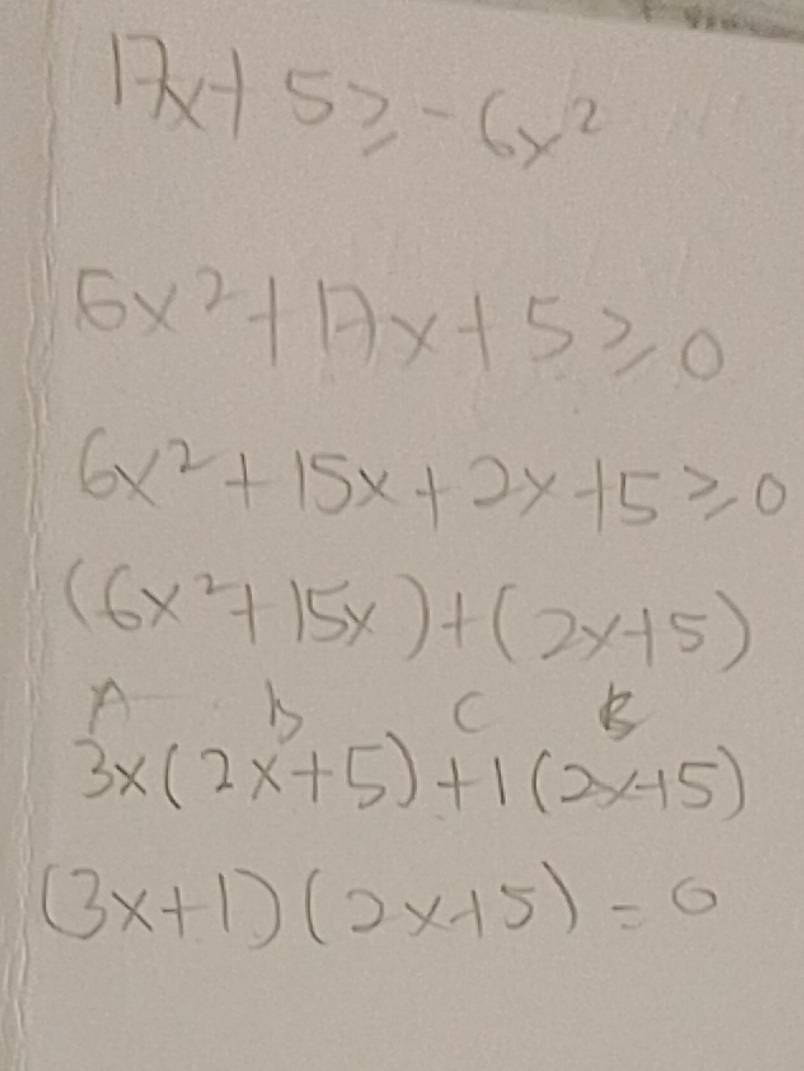 17x+5≥-6x²
6x²+17x+5≥0
6x²+15x+2x+5≥0
(6x²+15x)+(2x+5)
A b C B
3x(2x+5)+1(2x+5)
(3x+1)(2x+5)=0